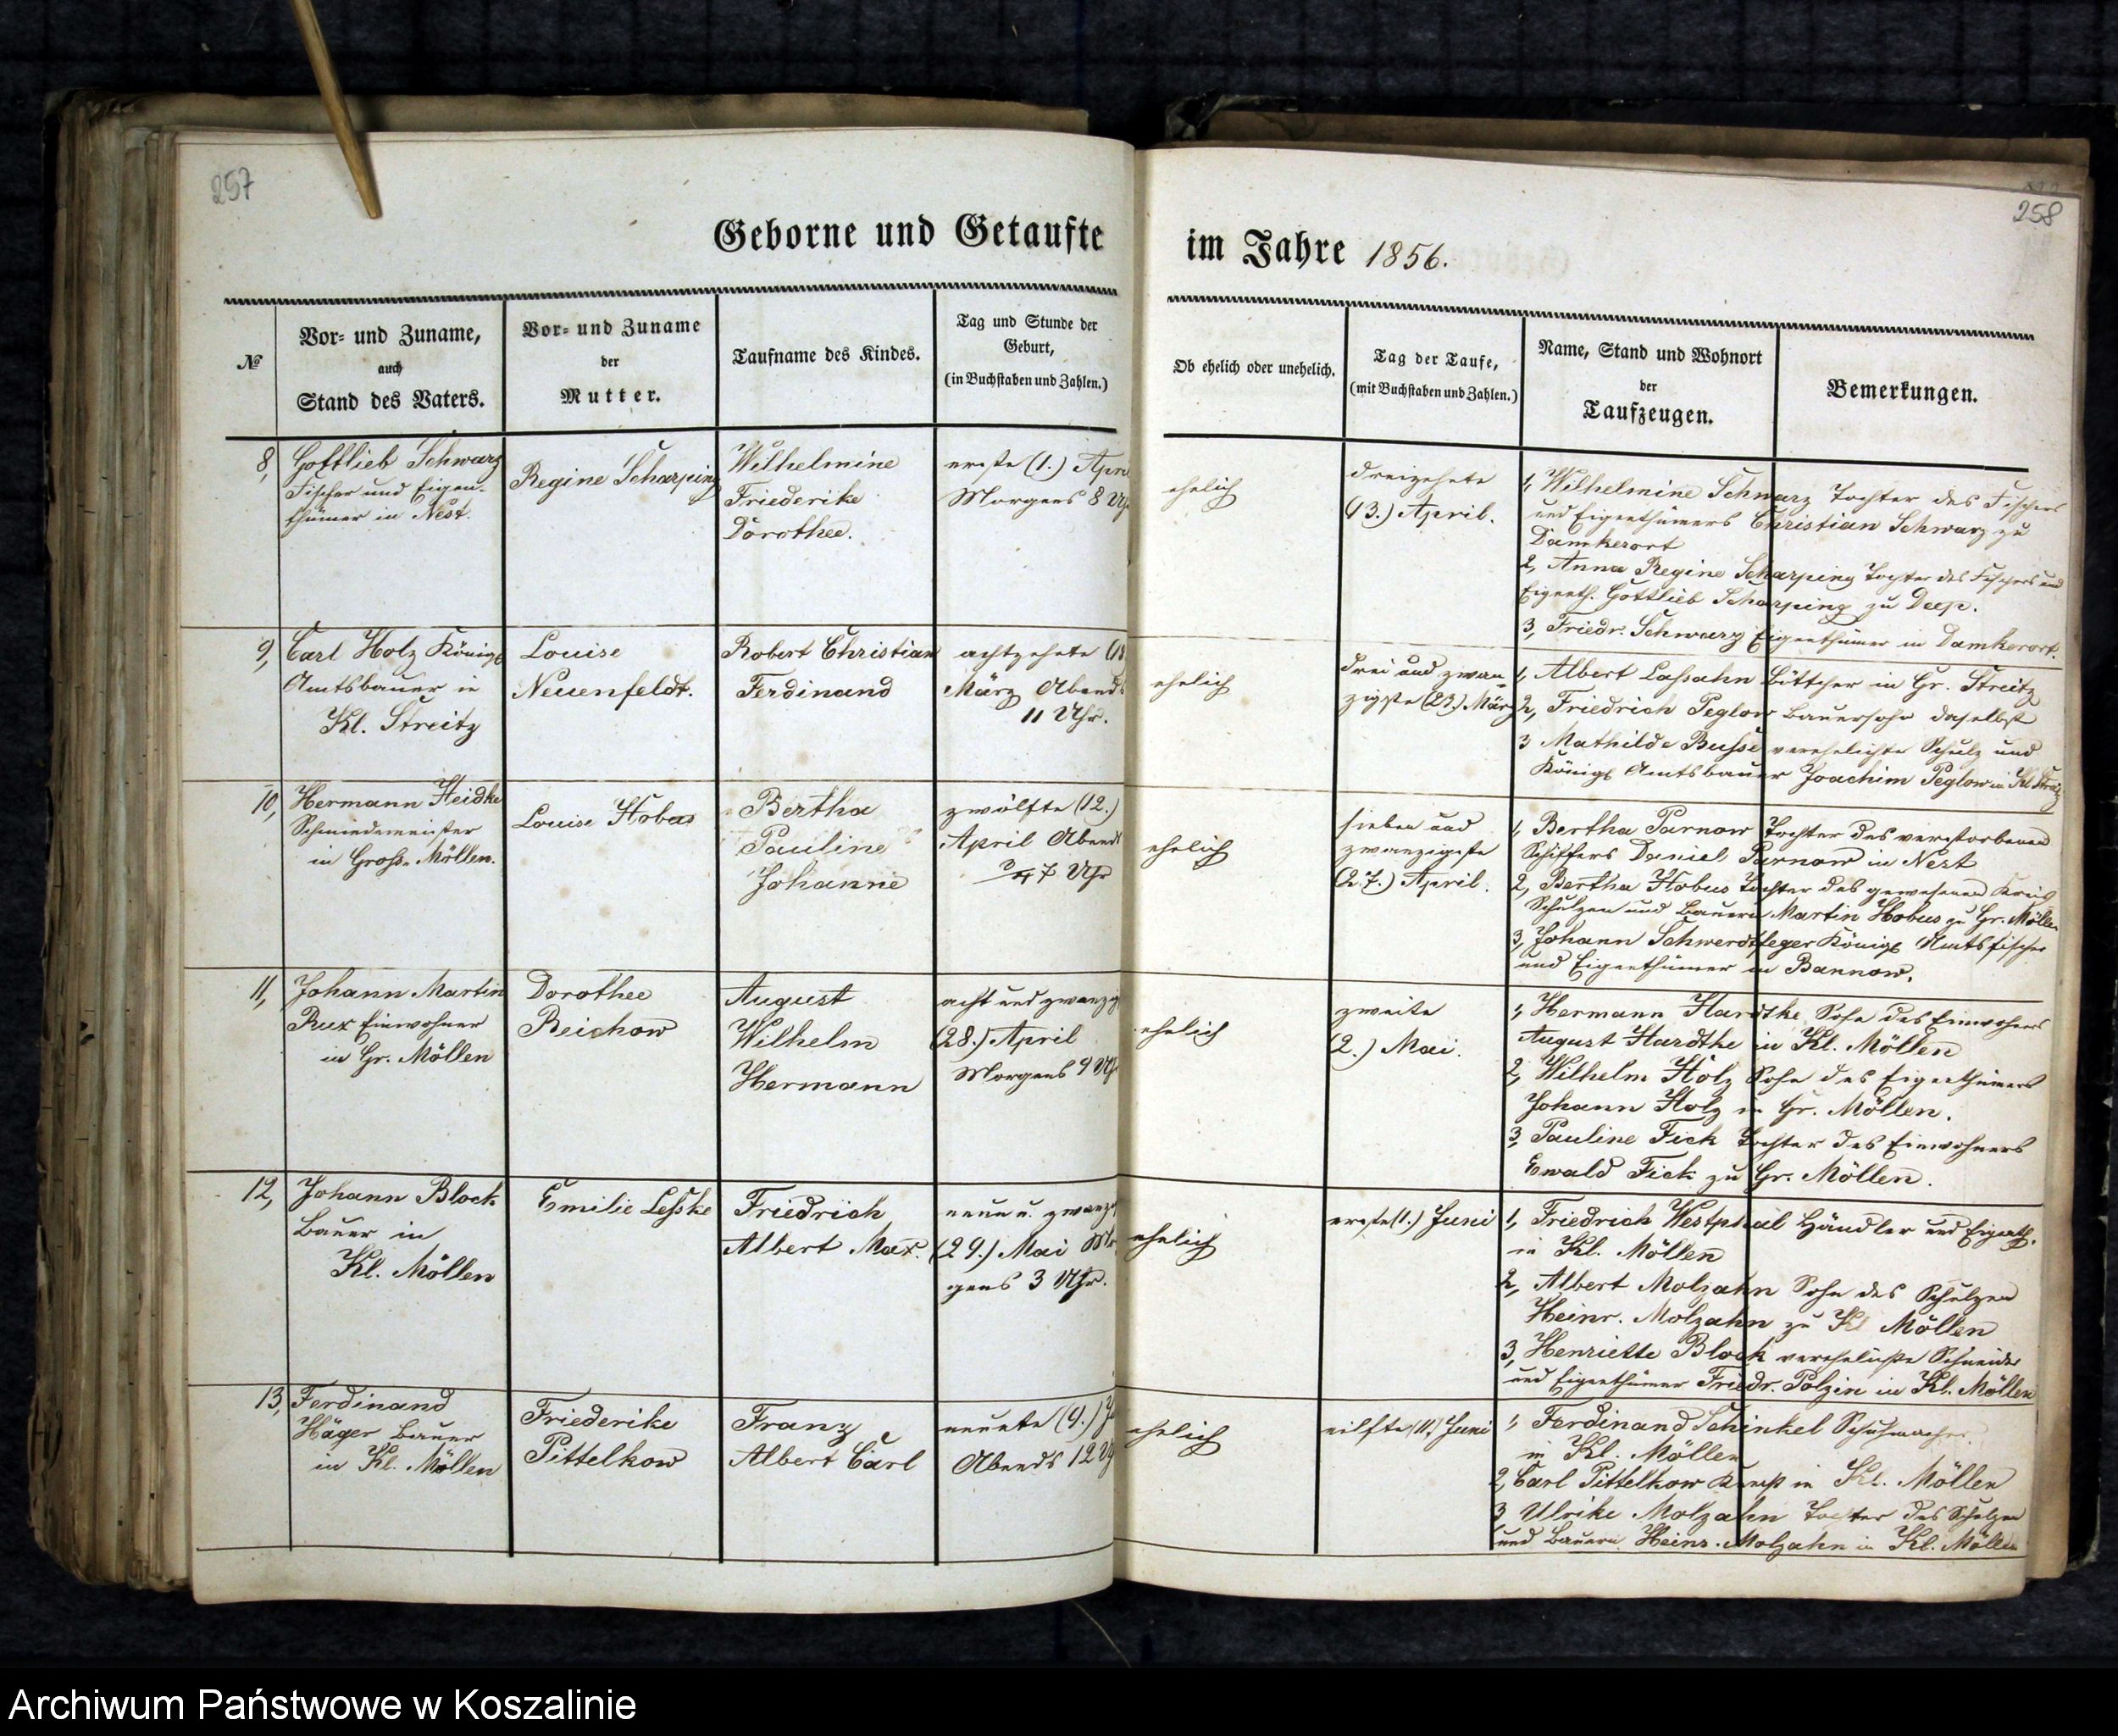 257
258
Geborne und Getaufte
im Jahre 1856.
№
Vor- und Zuname,
auch
Stand des Vaters.
Vor- und Zuname
der
Mutter.
Taufname des Kindes.
Tag und Stunde der
Geburt,
(in Buchstaben und Zahlen.)
Ob ehelich oder unehelich.
Tag der Taufe,
(mit Buchstaben und Zahlen.)
Name, Stand und Wohnort
der
Taufzeugen.
Bemerkungen.
8,
Gottlieb Schwarz
Fischer und Eigen-
thümer in Nest.
Regine Scharping
Wilhelmine
Friederike
Dorothee.
erste (1.) April
Morgens 8 Uhr
ehelich
dreizehnte
(13.) April.
1, Wilhelmine Schwarz Tochter des Fischers
und Eigenthümers Christian Schwarz zu
Damkerort
2, Anna Regine Scharping Tochter des Fischers und
Eigenth. Gottlieb Scharping zu Deep.
3, Friedr. Schwarz Eigenthümer in Damkerort.
9,
Carl Holz Königl
Amtsbauer in
Kl. Streitz
Louise
Neuenfeldt.
Robert Christian
Ferdinand
achtzehnte (18
März Abends
11 Uhr.
ehelich
drei und zwan-
zigste (23) März
1, Albert Lassahn Böttcher in Gr. Streitz
2, Friedrich Peglow Bauersohn daselbst
3 Mathilde Busse verehelichte Schulz und
Königl Amtsbauer Joachim Peglow in Kl Streitz
10,
Hermann Heidke
Schmiedemeister
in Gross- Möllen.
Louise Hobus
Bertha
Pauline
Johanne
zwölfte (12.)
April Abends
¾ 7 Uhr
ehelich
sieben und
zwanzigste
(27.) April.
1, Bertha Parnow Tochter des verstorbenen
Schiffers Daniel Parnow in Nest
2, Bertha Hobus Tochter des gewesenen Kreis
Schulzen und Bauern Martin Hobus zu Gr. Möllen
3, Johann Schwerdtfeger Königl Amtsfischer
und Eigenthümer in Bannow.
11,
Johann Martin
Rux Einwohner
in Gr. Möllen
Dorothee
Reichow
August
Wilhelm
Hermann
acht und zwanzig
(28.) April
Morgens 9 Uhr
ehelich
zweite
(2.) Mai.
1, Hermann Hardtke Sohn des Einwohners
August Hardthe in Kl. Möllen
2, Wilhelm Holz Sohn des Eigenthümers
Johann Holz in Gr. Möllen.
3, Pauline Fick Tochter des Einwohners
Ewald Fick zu Gr. Möllen.
12,
Johann Block
Bauer in
Kl. Möllen
Emilie Lesske
Friedrich
Albert Max.
neun u. zwanzig
(29.) Mai Mor
gens 3 Uhr.
ehelich
erste (1.) Juni
1, Friedrich Westphal Händler und Eigenth.
in Kl. Möllen
2, Albert Molzahn Sohn des Schulzen
Heinr. Molzahn zu Kl Möllen
3, Henriette Block verehelichte Schneider
und Eigenthümer Friedr. Polzin in Kl. Möllen
13,
Ferdinand
Häger Bauer
in Kl. Möllen
Friederike
Pittelkow
Franz
Albert Carl
neunte (9.) Ju
Abends 12 Uhr
ehelich
eilfte (11.) Juni
1, Ferdinand Schinkel Schuhmacher
in Kl. Möllen
2, Carl Pittelkow Knecht in Kl. Möllen
3 Ulrike Molzahn Tochter des Schulzen
und Bauern Heinr. Molzahn in Kl. Möllen
Archiwum Państwowe w Koszalinie